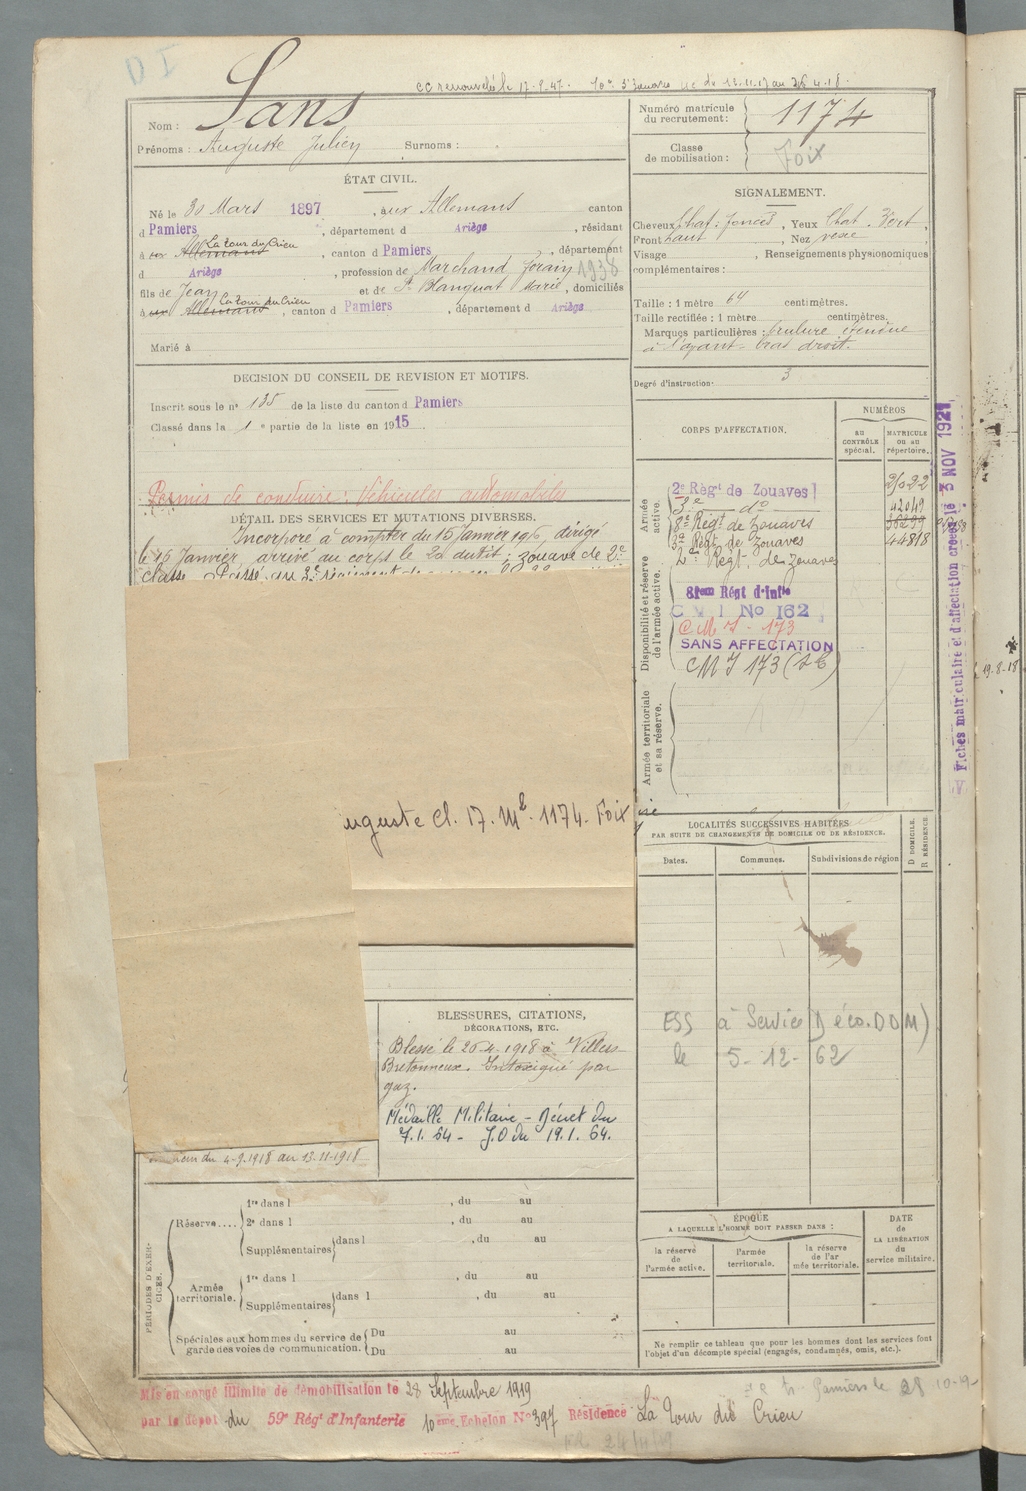 D I
CC renouvelée le 17-9-47. 10e 3e Zouaves UC du 13.11.17 au 26.4.18.
Nom : Sans
Prénoms : Auguste Julien Surnoms :
Numéro matricule du recrutement : 1174
Classe de mobilisation : Foix
ÉTAT CIVIL.
Né le 30 Mars 1897, aux Allemans canton
d Pamiers, département d Ariège, résidant
à aux Allemans La tour du Crieu, canton d Pamiers, département
d Ariège, profession de Marchand forain 1938
fils de Jean et de St Blanquat Marie, domiciliés
à aux Allemans La tour du Crieu, canton d Pamiers, département d Ariège
Marié à
SIGNALEMENT.
Cheveux chat. foncés, Yeux Chat. Vert,
Front haut, Nez vexe
Visage , Renseignements physionomiques
complémentaires :
Taille : 1 mètre 64 centimètres.
Taille rectifiée : 1 mètre centimètres.
Marques particulières : brulure étendue
à l'avant-bras droit.
Degré d'instruction : 3
DECISION DU CONSEIL DE REVISION ET MOTIFS.
Inscrit sous le n° 135 de la liste du canton d Pamiers
Classé dans la 1 e partie de la liste en 1915
Permis de conduire : Véhicules automobiles
DÉTAIL DES SERVICES ET MUTATIONS DIVERSES.
Incorporé à compter du 15 Janvier 1916, dirigé
le 15 Janvier, arrivé au corps le dudit ; zouave de 2e
classe. Passé au 3e régiment de
CORPS D'AFFECTATION.
NUMÉROS
AU CONTRÔLE SPÉCIAL.
MATRICULE OU AU RÉPERTOIRE.
Armée active.
2e Régt de Zouaves 21022
3e do 42049
8e Régt de Zouaves 36299
3e Régt de Zouaves 44818
2e Regt. de Zouaves
Disponibilité et réserve de l'armée active.
81eme Régt d'Infie
C M I No 162
C M I - 173
SANS AFFECTATION
CMI 173
Armée territoriale et sa réserve.
Fiches matriculaire et d'affectation créées le 3 NOV 1921
19-8-18
uguste Cl. 17. Mle. 1174. Foix
LOCALITÉS SUCCESSIVES HABITÉES
PAR SUITE DE CHANGEMENTS DE DOMICILE OU DE RÉSIDENCE.
Dates. Communes. Subdivisions de région
D DOMICILE. R RÉSIDENCE.
ESS à Service (Déco. DDM)
le 5-12-62
BLESSURES, CITATIONS,
DÉCORATIONS, ETC.
Blessé le 26-4-1918 à Villers-
Bretonneux. Intoxiqué par
gaz.
Médaille Militaire - Décret du
7.1.64 - J.O du 19.1.64.
du 4-9-1918 au 13-11-1918
PÉRIODES D'EXERCICES.
Réserve.... 1re dans l , du au
2e dans l , du au
Supplémentaires dans l , du au
Armée territoriale. 1re dans l , du au
Supplémentaires dans l , du au
Spéciales aux hommes du service de garde des voies de communication. Du au
Du au
ÉPOQUE
A LAQUELLE L'HOMME DOIT PASSER DANS :
la réserve de l'armée active.
l'armée territoriale.
la réserve de l'armée territoriale.
DATE de LA LIBÉRATION du service militaire.
Ne remplir ce tableau que pour les hommes dont les services font
l'objet d'un décompte spécial (engagés, condamnés, omis, etc.).
Mis en congé illimité de démobilisation le 28 Septembre 1919
par le dépôt du 59e Régt d'Infanterie 10eme Echelon N° 397 Résidence La Tour du Crieu
Pamiers le 28 10-9-